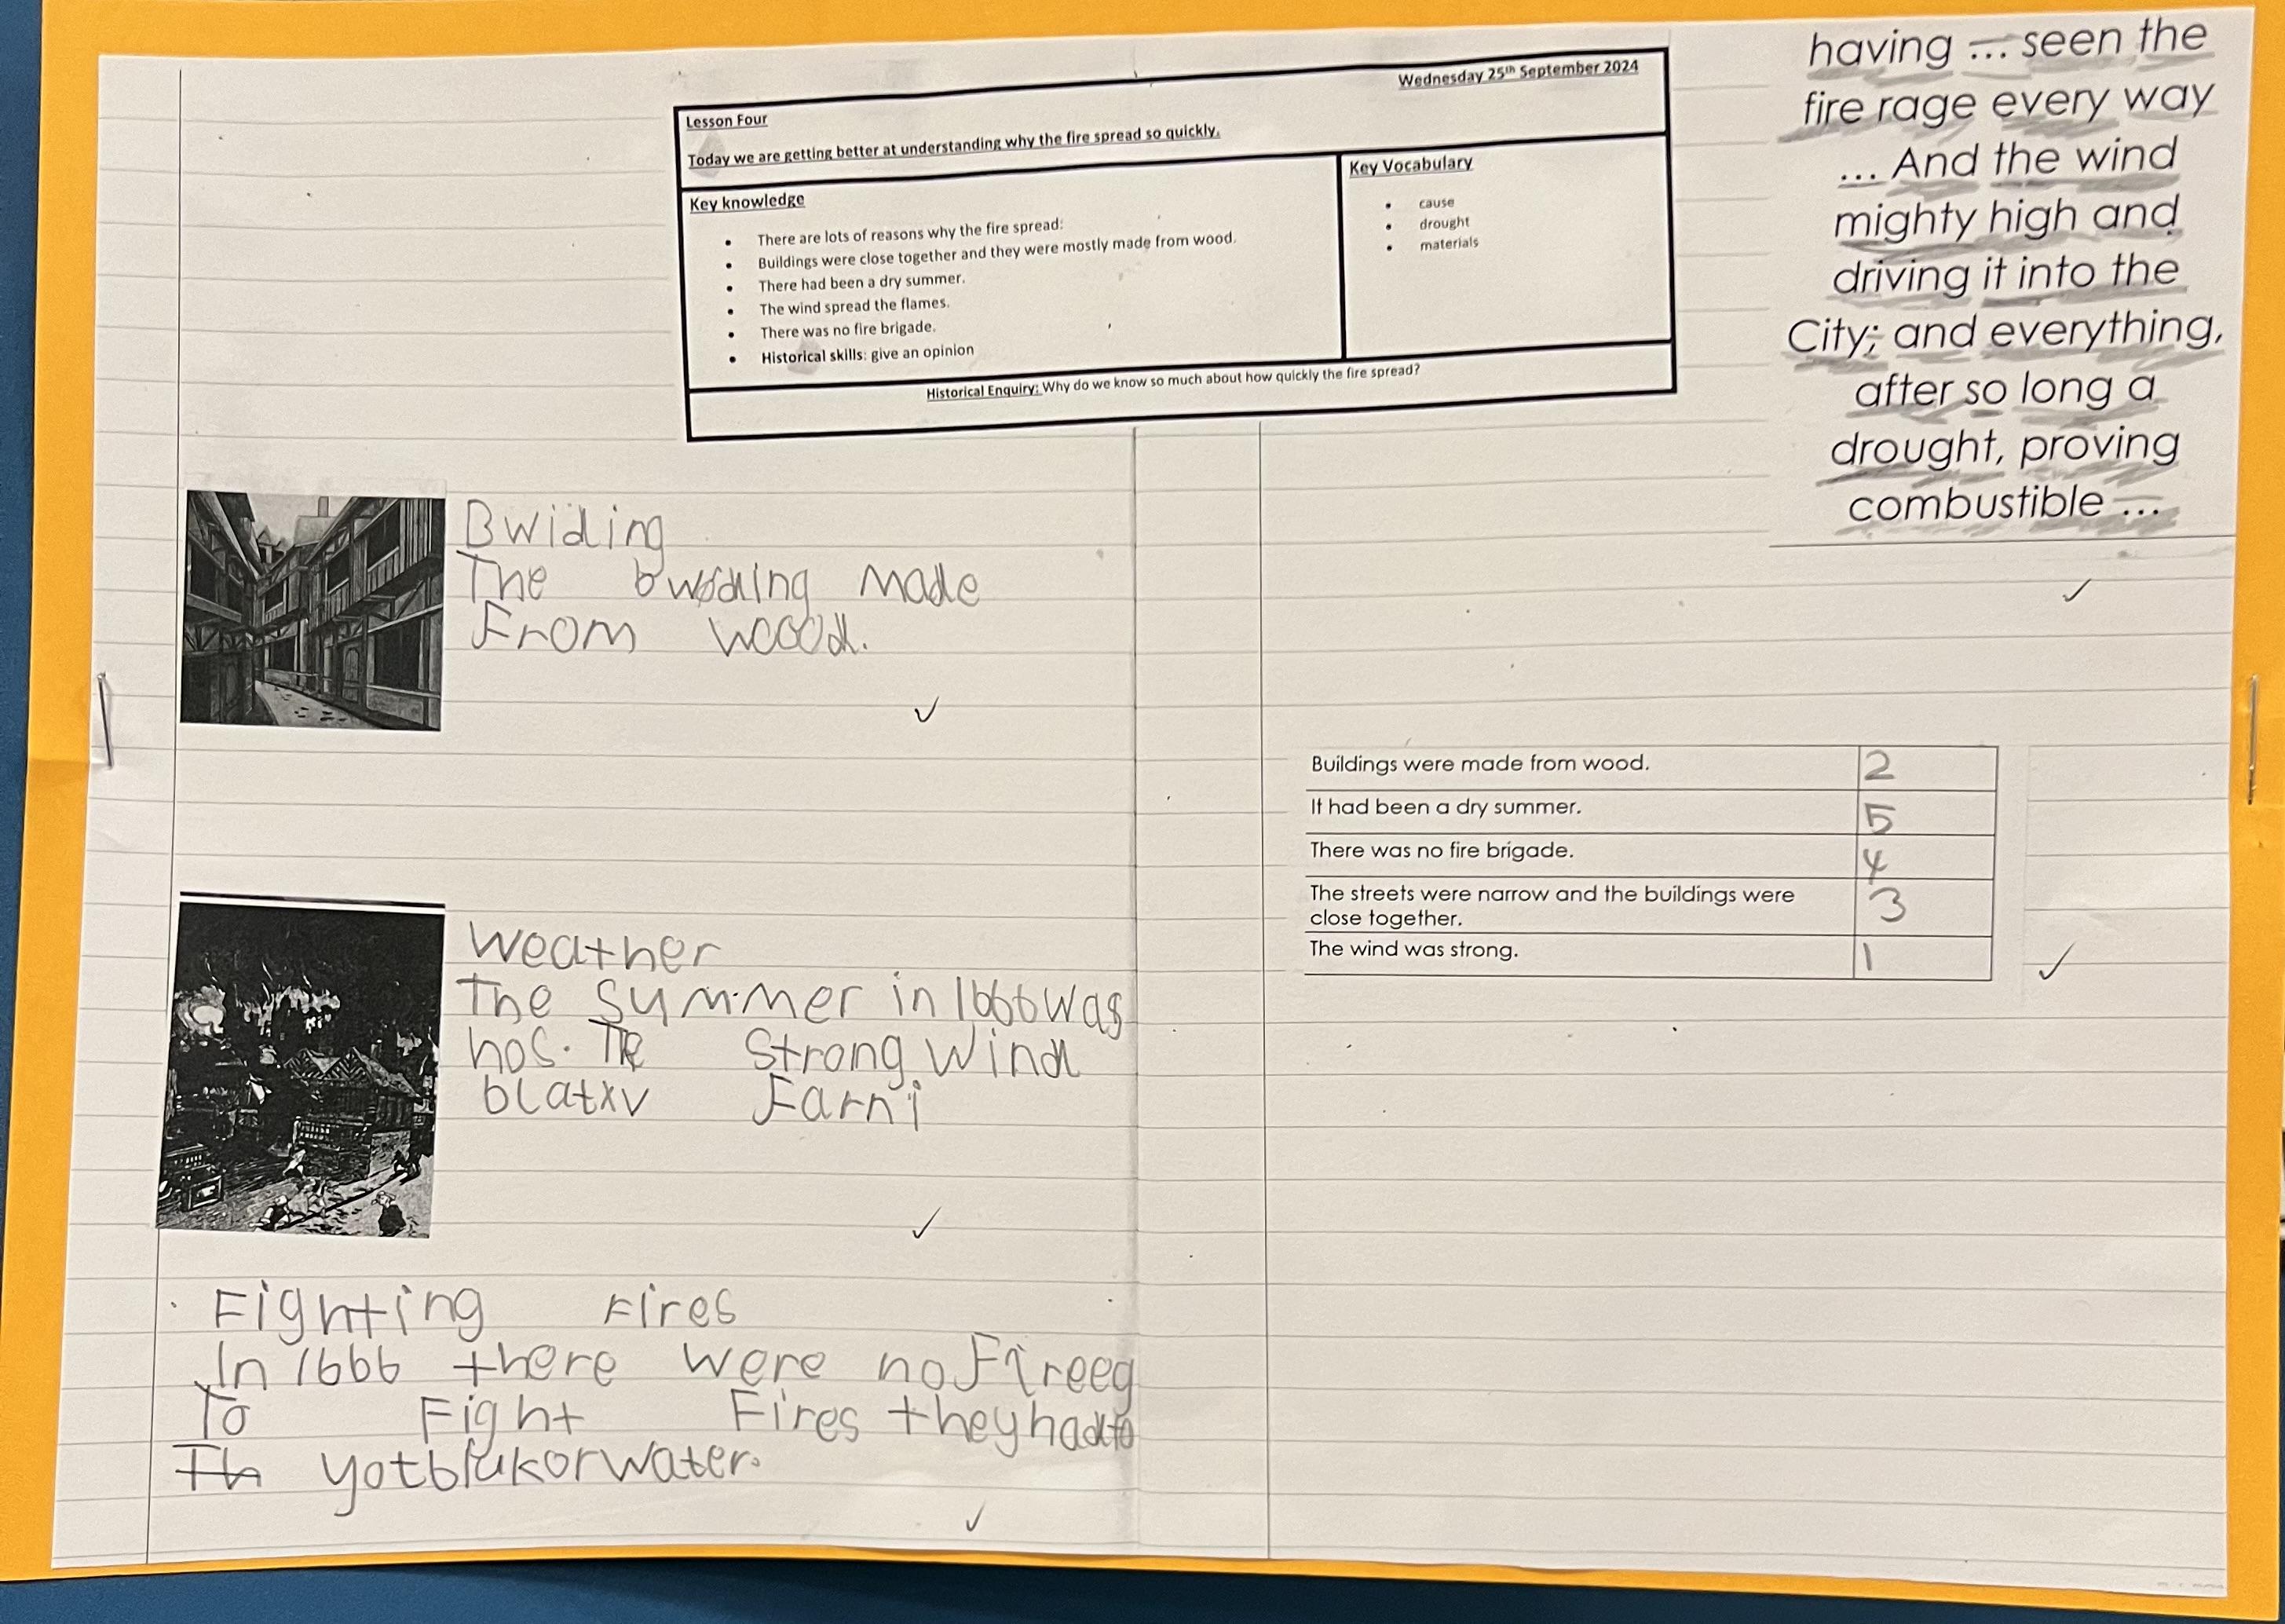 Wednesday 25th September 2024
Lesson Four
Today we are getting better at understanding why the fire spread so quickly.
Key knowledge
• There are lots of reasons why the fire spread:
• Buildings were close together and they were mostly made from wood.
• There had been a dry summer.
• The wind spread the flames.
• There was no fire brigade.
• Historical skills: give an opinion
Key Vocabulary
• cause
• drought
• materials
Historical Enquiry: Why do we know so much about how quickly the fire spread?
Bwiding
The made
From woood.
Weather
The Summer in 1666 was
The Strong Wind
Farni
Fighting Fires
In 1666 there were no
To Fight Fires they had to
Th water.
having ... seen the
fire rage every way
... And the wind
mighty high and
driving it into the
City; and everything,
after so long a
drought, proving
combustible ...
Buildings were made from wood. 2
It had been a dry summer. 5
There was no fire brigade. 4
The streets were narrow and the buildings were
close together. 3
The wind was strong. 1